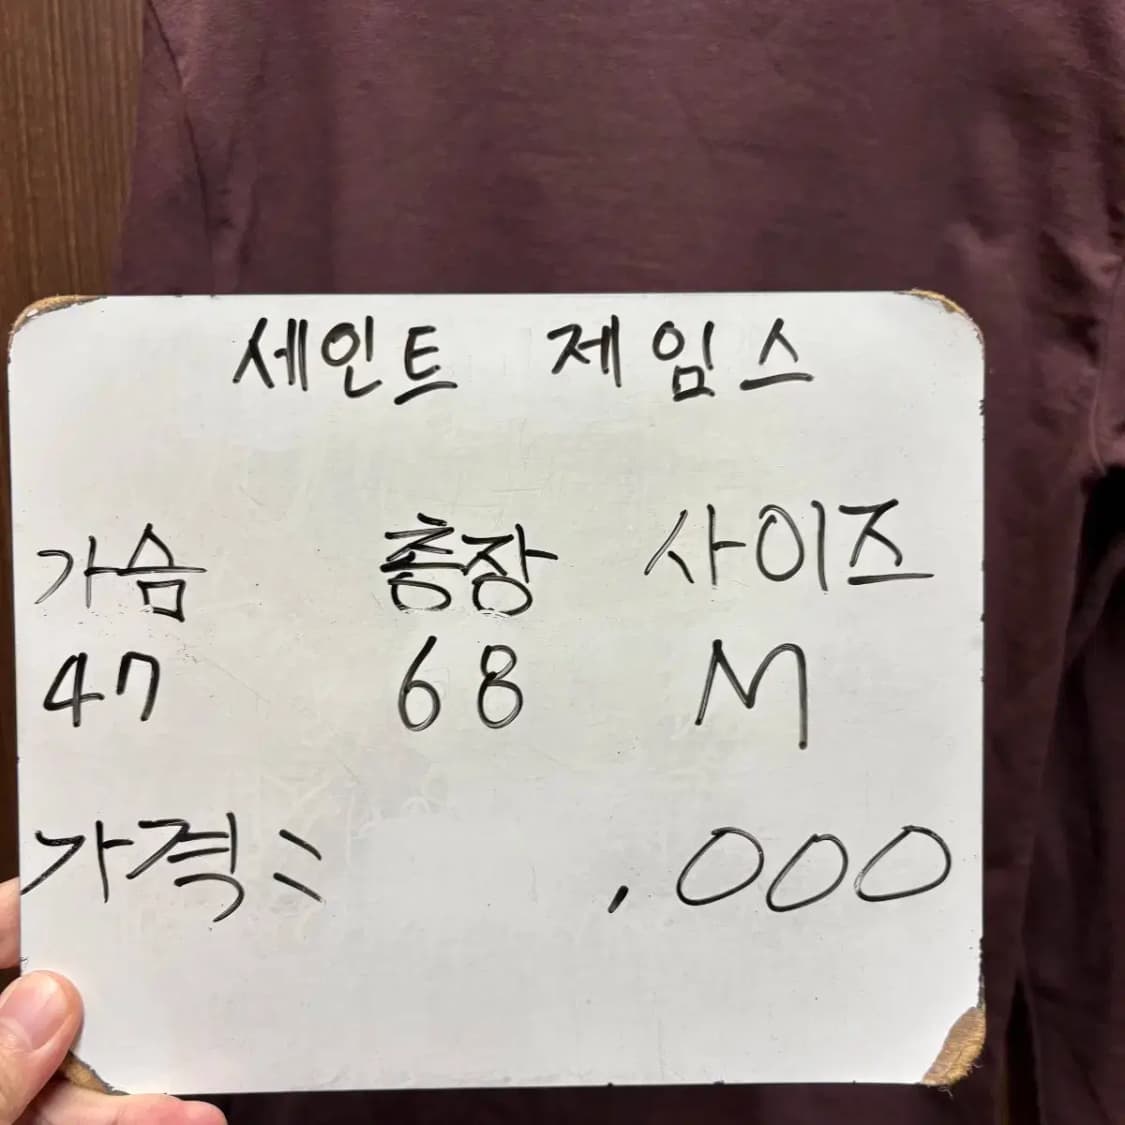 세인트 제임스
가슴 총장 사이즈
47 68 M
가격 : .000